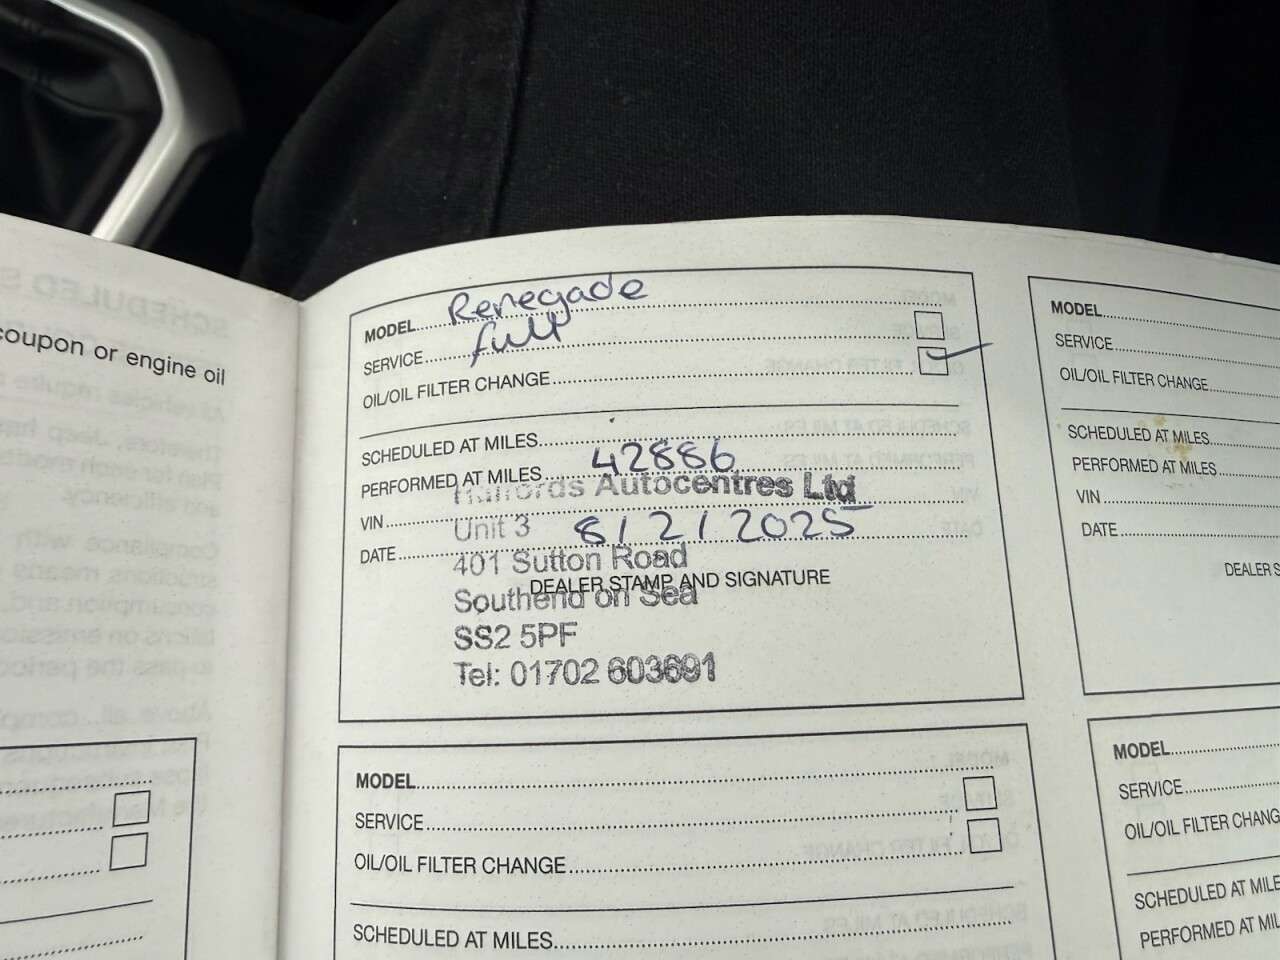 coupon or engine oil
MODEL Renegade
SERVICE full
OIL/OIL FILTER CHANGE
SCHEDULED AT MILES
PERFORMED AT MILES 42886
VIN
Halfords Autocentres Ltd
Unit 3
DATE 8/2/2025
401 Sutton Road
DEALER STAMP AND SIGNATURE
Southend on Sea
SS2 5PF
Tel: 01702 603691
MODEL
SERVICE
OIL/OIL FILTER CHANGE
SCHEDULED AT MILES
MODEL
SERVICE
OIL/OIL FILTER CHANGE
SCHEDULED AT MILES
PERFORMED AT MILES
VIN
DATE
DEALER S
MODEL
SERVICE
OIL/OIL FILTER CHANG
SCHEDULED AT MILE
PERFORMED AT MIL